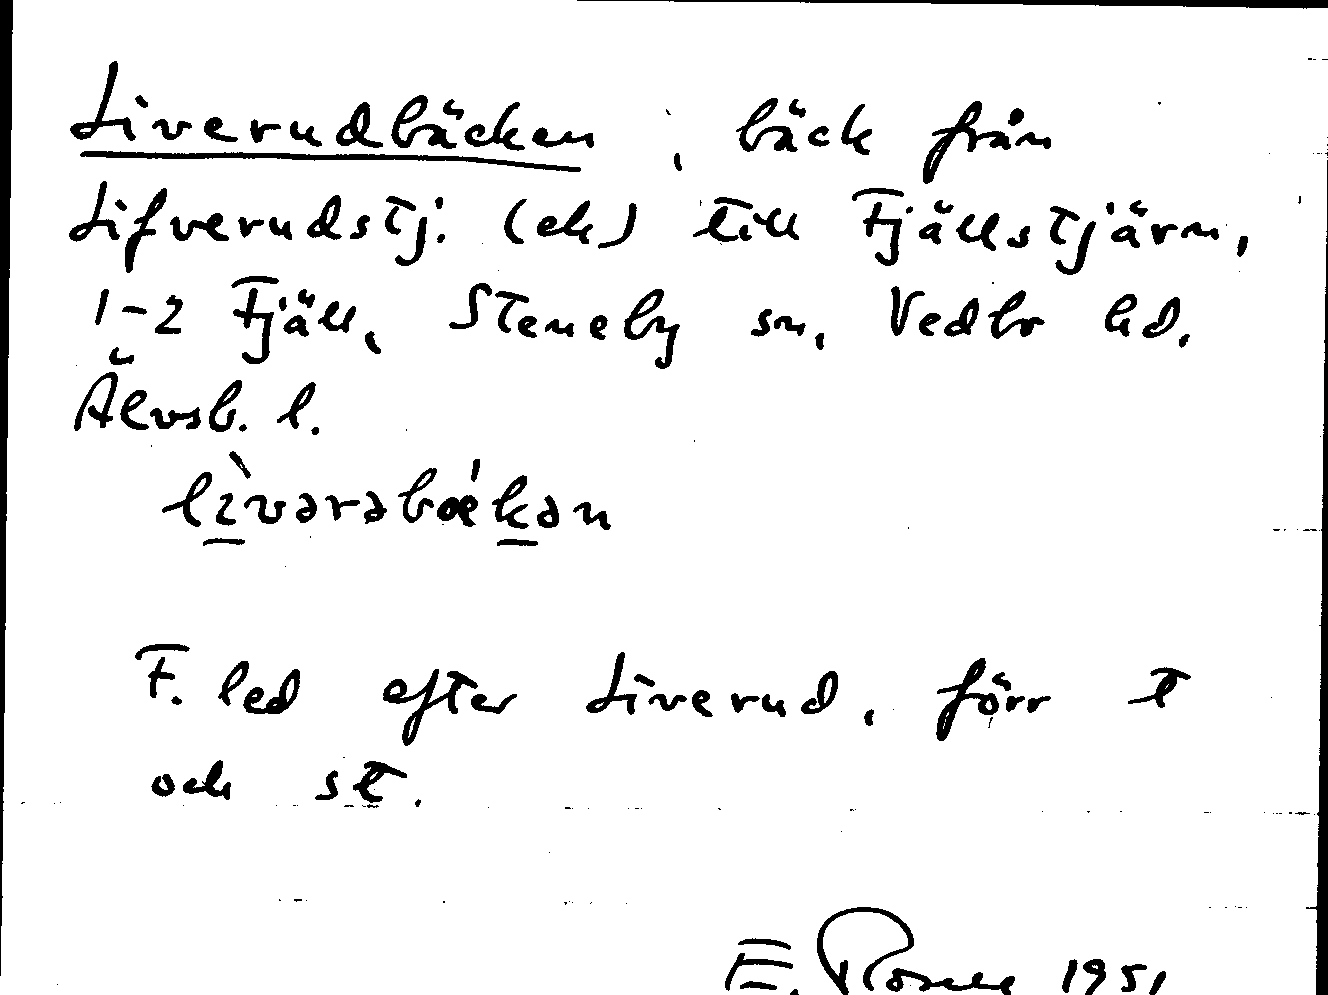 Liverudbäcken, bäck från
Lifverudstj. (ek) till Fjällstjärn,
1-2 Fjäll, Steneby sn, Vedbo hd.
Älvsb. l.
lìvərəbǽkən
F. led efter Liverud, förr t
och st.
E. Rosell 1951